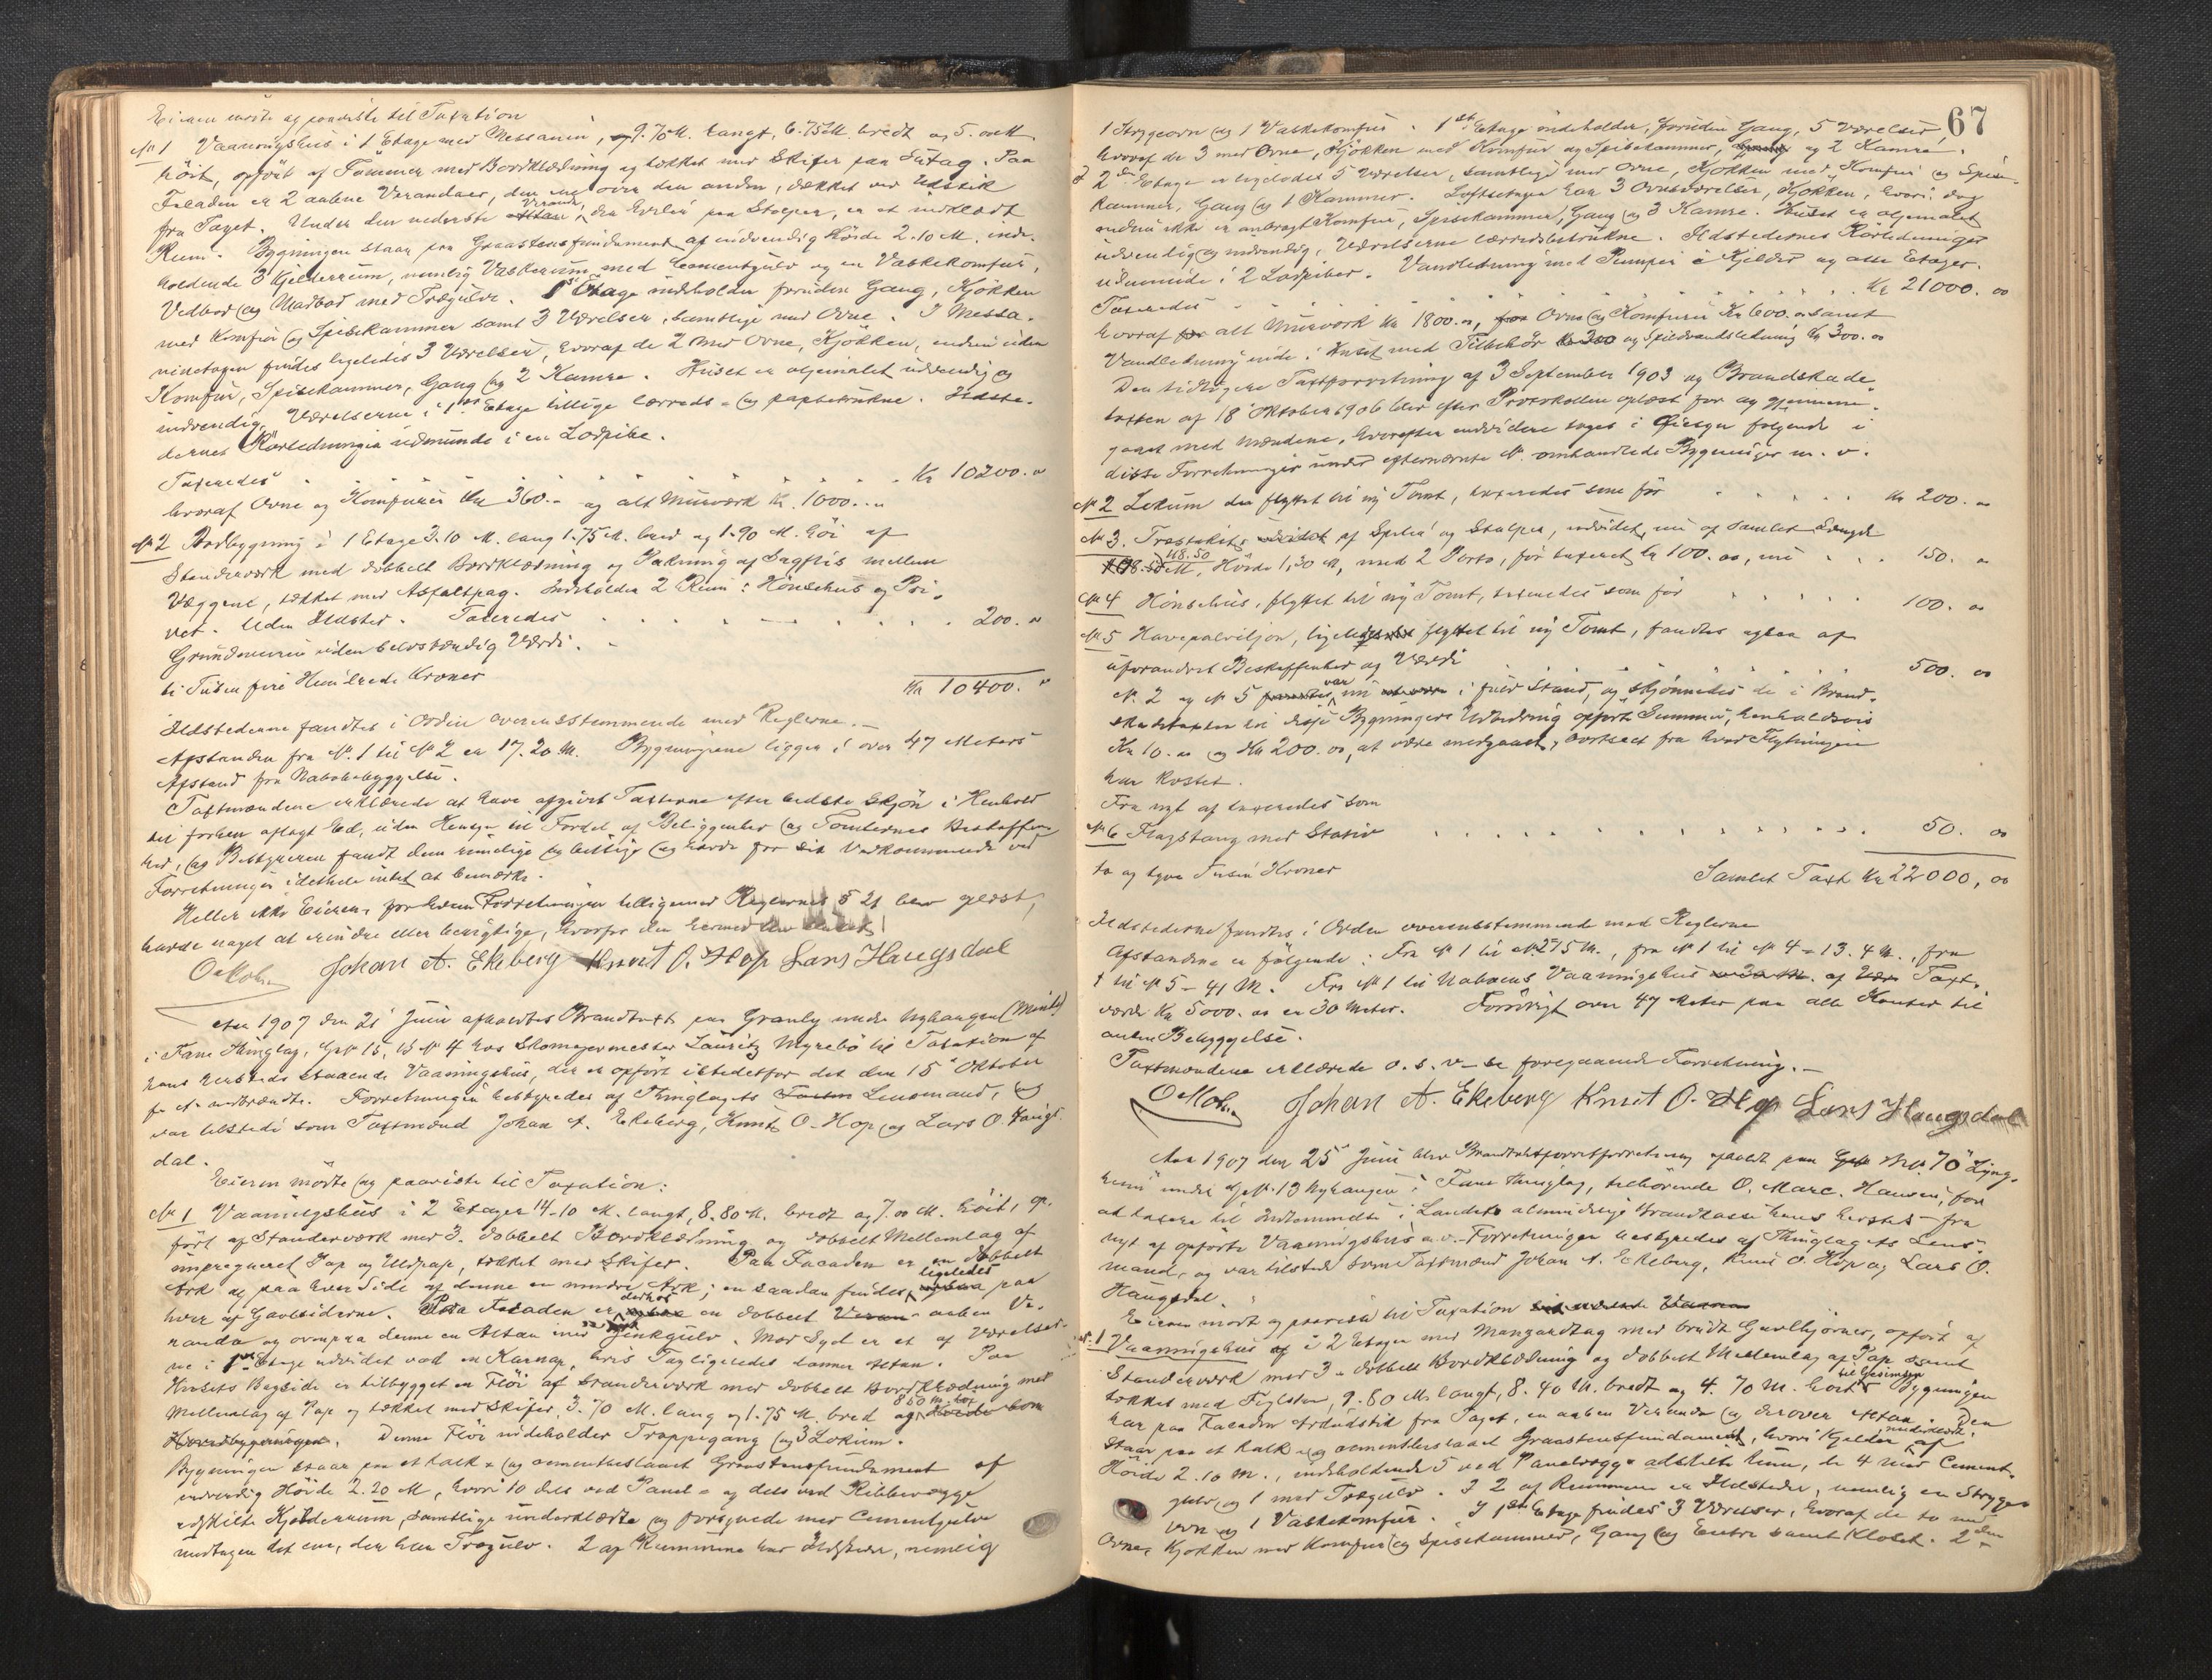 Eieren mødte og paaviste til Taxation
No 1 Vaaningshus i 1 Etage med Messanin, 9.70 M. langt, 6.75 M. bredt og 5.00 M.
höit, opfört af Tömmer med Bordklædning og tækket med Skifer paa Sutag. Paa
Facaden er 2 aabne Verandaer, den ene over den anden, dækket ved Udstik
fra Taget. Under den nederste Altan Veranda, der hviler paa Stolper, er et indklædt
Rum. Bygningen staar paa Graastensfundament af indvendig Höide 2.10 M. inde-
holdende 3 Kjelderrum, nemlig Vaskerum med Cementgulv og en Vaskekomfur,
Vedbod og Madbod med Trægulve. 1st Etage indeholder foruden Gang, Kjökken
med Komfur og Spisekammer samt 3 Værelser, samtlige med Ovne. I Messa-
ninetagen findes ligeledes 3 Værelser, hvoraf de 2 med Ovne, Kjökken, endnu uden
Komfur, Spisekammer, Gang og 2 Kamre. Huset er oljemalet udvendig og
indvendig, Værelserne i 1ste Etage tillige lærreds- og papbetrukne. Ildste-
dernes Rörledninger udmunde i en Lodpibe.
Taxeredes . . . . . . . . . Kr 10200. "
hvoraf Ovne og Komfurer Kr 360.- og alt Murværk Kr. 1000.. "
No 2 Bodbygning i 1 Etage 3.10 M. lang 1.75 M. bred og 1.90 M. höi af
Standerværk med dobbelt Bordklædning og Pakning af Sagflis mellem
Væggene, tækket med Asfaltpap. Indeholder 2 Rum: Hönsehus og Pri-
vet. Uden Ildsted. Taxeredes . . . . . . . . 200. "
Grundmuren uden selvstændig Værdi. -
ti Tusen fire Hundrede Kroner Kr 10400. "
Ildstederne fandtes i Orden overensstemmende med Reglerne. -
Afstanden fra No. 1 til No 2 er 17.20 M. Bygningerne ligger i over 47 Meters
Afstand fra Nabobebyggelse.
Taxtmændene erklærede at have afgivet Taxterne efter bedste Skjön i Henhold
til forhen aflagt Ed, uden Hensyn til Fordel af Beliggenhed og Tomternes Beskaffen-
hed, og Bestyreren fandt dem rimelige og billige og havde for sit Vedkommende ved
Forretningen idethele intet at bemærke.
Heller ikke Eieren, for hvem Forretningen tilligemed Reglernes § 21 blev oplæst,
havde noget at erindre eller berigtige, hvorfor den hermed blev sluttet
Johan A. Ekeberg Knut O. Hop Lars Haugsdal
Aar 1907 den 21 Juni afholdtes Brandtaxt paa Granly under Nyhaugen (Minde)
i Fane Thinglag, GNo 13, BNo 4 hos Skomagermester Lauritz Myrebö til Taxation af
hans hersteds staaende Vaaningshus, der er opfört istedetfor det den 15 Oktober
f. A. nedbrændte. Forretningen bestyredes af Thinglagets Lensmand, og
var tilstede som Taxtmænd Johan A. Ekeberg, Knut O. Hop og Lars O. Haugs-
dal.
Eieren mödte og paaviste til Taxation:
No 1 Vaaningshus i 2 Etager 14.10 M. langt, 8.80 M. bredt og 7.00 M. höit, op-
fört af Standerværk med 3. dobbelt Bordklædning og dobbelt Mellemlag af
impregneret Pap og Uldpap, tækket med Skifer. Paa Facaden er en dobbelt
Ark og paa hver Side af denne en mindre Ark; en saadan findes ligeledes paa
hver af Gavlsiderne. Paa Facaden er derhos en dobbelt Veran- aaben Ve-
randa og ovenpaa denne en Altan med Zinkgulv. Mod Syd er et af Værelser-
ne i 1ste Etage udvidet ved en Karnap, hvis Tag ligeledes danner Altan. Paa
Husets Bagside er tilbygget en Flöi af Standerværk med dobbelt Bordklædning med
Mellemlag af Pap og tækket med Skifer, 3.70 M. lang og 1.75 M. bred og 8.50 M. höi Höide som
Hovedbygningen. Denne Flöi indeholder Trappegang og 3 Lokum.
Bygningen staar paa et kalk- og cementberslaaet Graastensfundament af
indvendig Höide 2.20 M, hvori 10 dels ved Panel- og dels ved Ribbevægge
adskilte Kjelderrum, samtlige underklædte og forsynede med Cementgulve
undtagen det ene, der har Trægulv. 2 af Rummene har Ildsteder, nemlig
67
1 Strygeovn og 1 Vaskekomfur. 1ste Etage indeholder, foruden Gang, 5 Værelser,
hvoraf de 3 med Ovne, Kjökken med Komfur og Spisekammer, og 2 Kamre.
I 2den Etage er ligeledes 5 Værelser, samtlige med Ovne, Kjökken med Komfur og Spise-
kammer, Gang og 1 Kammer. Loftsetagen har 3 Ovnsværelser, Kjökken, hvori dog
endnu ikke er anbragt Komfur, Spisekammer, Gang og 3 Kamre. Huset er oljemalet
udvendig og indvendig, Værelserne lærredsbetrukne. Ildstedernes Rörledninger
udmunde i 2 Lodpiber. Vandledning med Pumper i Kjelder og alle Etager.
Taxeredes . . . . . . . . . . Kr 21000. 00
hvoraf for alt Murværk Kr 1800.00, for Ovne og Komfurer Kr 600.00 samt
Vandledning inde i Huset med Tilbehör Kr 300 og Spildvandsledning Kr 300.00
Den tidligere Taxtforretning af 3 September 1903 og Brandskade-
taxten af 18 Oktober 1906 blev efter Protokollen oplæst for og gjennem-
gaaet med Mændene, hvorefter endvidere toges i Öiesyn fölgende i
disse Forretninger under efternævnte No. omhandlede Bygninger m. v.
No 2 Lokum der flyttet til ny Tomt, taxeredes som för . . . . . Kr 200. "
No 3. Træstakit af Speler og Stolper, udvidet, nu af samlet Længde
118.50 M, Höide 1,30 M, med 2 Porte, för taxeret Kr 100.00, nu . . . 150. "
No 4 Hönsehus, flyttet til ny Tomt, taxeredes som för . . . . . 100. 00
No 5 Havepavilion, ligeledes flyttet til ny Tomt, fandtes ogsaa af
uforandret Beskaffenhed og Værdi . . . . . 500. 00
No. 2 og No 5 var nu i fuld Stand, og skjönnedes de i Brand-
skadetaxten til disse Bygningers Udbedring opförte Summer, henholdsvis
Kr 10.00 og Kr 200.00, at være medgaaet, bortseet fra hvad Flytningen
har kostet.
Fra nyt af taxeredes som
No 6 Flagstang med Stativ . . . . . . . . . . . . 50. 00
to og tyve Tusin Kroner Samlet Taxt Kr 22000,00
Ildstederne fandtes i Orden overensstemmende med Reglerne
Afstandene er fölgende: Fra No 1 til No 2 75 M., fra No 1 til No 4 - 13.4 M., fra
1 til No 5 - 41 M. Fra No 1 til Naboens Vaaningshus af Taxt-
værdi Kr 5000.00 er 30 Meter. Forövrigt over 47 Meter paa alle Kanter til
anden Bebyggelse.
Taxtmændene erklærede o. s. v. - se foregaaende Forretning. -
Johan A. Ekeberg Knut O. Hop Lars Haugsdal
Aar 1907 den 25 Juni blev Brandtaxtforretning afholdt paa BNo. 70 "Lyng-
heim" under GNo. 13 Nyhaugen i Fane Thinglag, tilhörende O. Marc. Hansen, for
at taxere til Indtemmelse i Landets almindelige Brandkasse hans hersteds fra
nyt af opförte Vaaningshus m.v. Forretningen bestyredes af Thinglagets Lens-
mand, og var tilstede som Taxtmænd Johan A. Ekeberg, Knut O. Hop og Lars O.
Haugsdal.
Eieren mödt og paaviste til Taxation
No. 1 Vaaningshus i 2 Etager med Mansardtag med brudt Gavlhjörner, opfört af
Standerværk med 3. dobbelt Bordklædning og dobbelt Mellemlag af Pap samt
tækket med Teglsten, 9.80 M. langt, 8.40 M. bredt og 4.70 M. höit til Gesimsen. Bygningen
har paa Facaden Arkudstik fra Taget, en aaben Veranda og derover Altan. Den
staar paa et kalk- og cementberslaaet Graastensfundament, hvori Kjelder af
Höide 2.10 M., indeholdende 5 ved Panelvægge adskilte Rum, de 4 med Cement-
gulv, og 1 med Trægulv. I 2 af Rummene er Ildsteder, nemlig en Stryge-
ovn og 1 Vaskekomfur. I 1ste Etage findes 3 Værelser, hvoraf de to med
Ovne, Kjökken med Komfur og Spisekammer, Gang og Entre samt Kloset. 2den